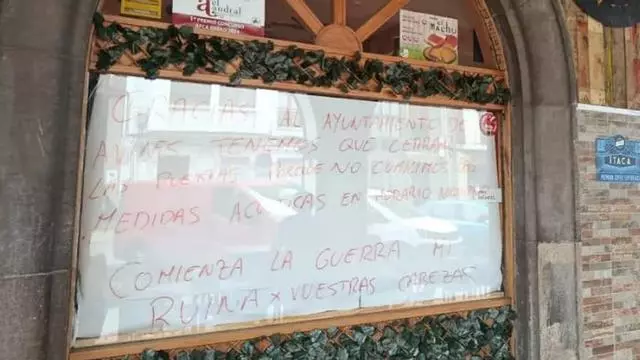 el andral
1er PREMIO CONCURSO
el MACHO
GRACIAS AL AYUNTAMIENTO DE
AVILES TENEMOS QUE CERRAR
LAS PUERTAS PORQUE NO CUMPLIMOS LAS
MEDIDAS ACUSTICAS EN HORARIO
COMIENZA LA GUERRA MI
RUINA X VUESTRAS CABEZAS
ITACA